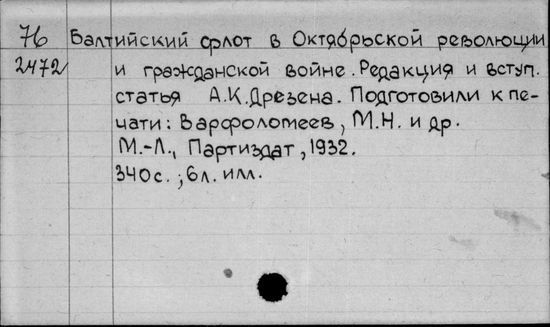 76 Балтийский флот в Октябрьской революции
2472 и гражданской войне. Редакция и вступ.
статья А.К.Дрезена. Подготовили к пе-
чати: Варфоломеев, М.Н. и др.
М.-Л., Партиздат, 1932.
340с.; 6л. илл.